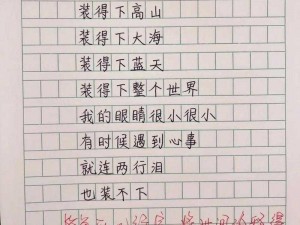 装得下高山
装得下大海
装得下蓝天
装得下整个世界
我的眼睛很小很小
有时候遇到心事
就连两行泪
也装不下